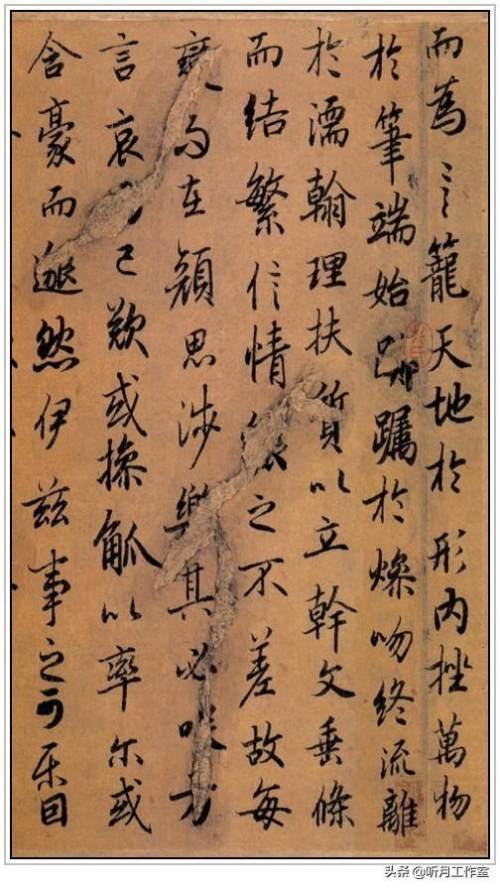 而為言籠天地於形內挫萬物
於筆端始躅於燥吻終流離
於濡翰理扶質以立幹文垂條
而結繁信情之不差故每
變而在顏思涉樂其必咲方
言哀已歎或操觚以率尔或
含豪而邈然伊茲事之可乐固
头条 @听月工作室